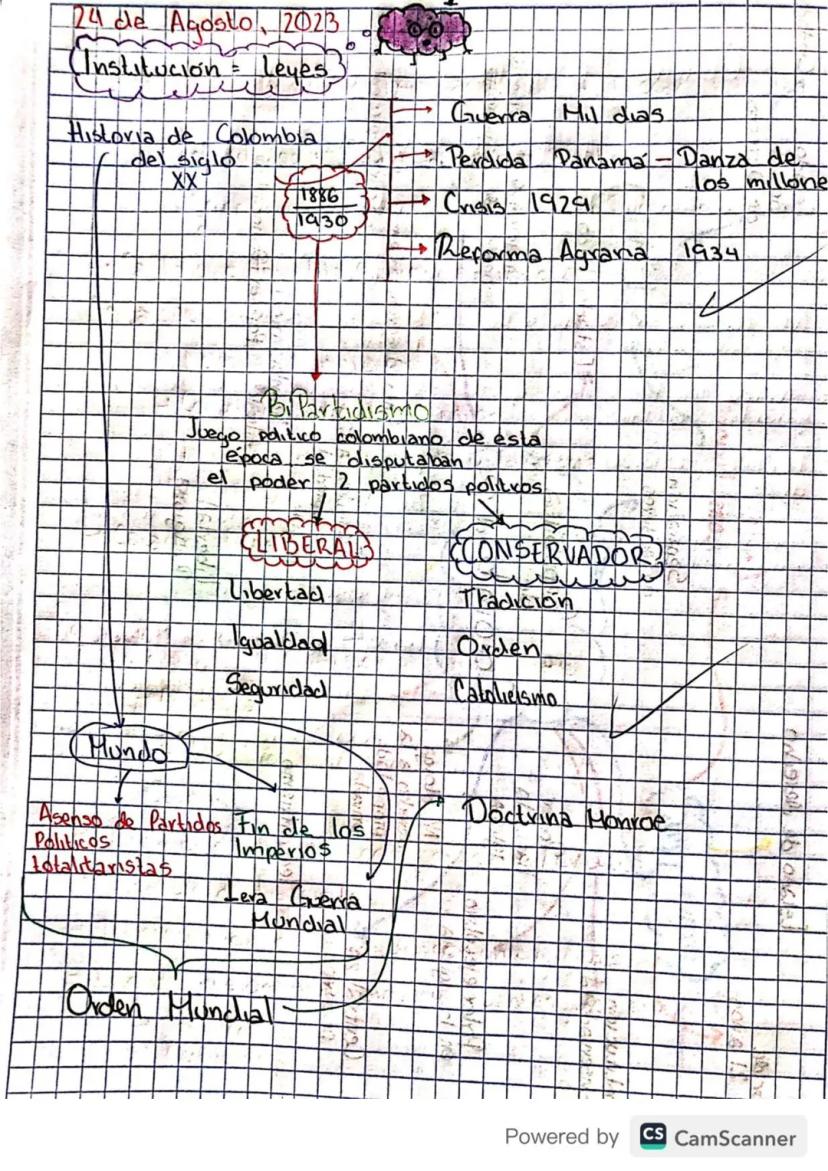 24 de Agosto, 2023
Institución = Leyes
Historia de Colombia
del siglo
XX
1886
1930
Guerra Mil dias
Perdida Panamá - Danza de
los millone
Crisis 1929
Reforma Agraria 1934
BiPartidismo
Juego politico colombiano de esta
época se disputaban
el poder 2 partidos politicos
LIBERAL
CONSERVADOR
Libertad
Tradición
Igualdad
Orden
Seguridad
Catolicismo
Mundo
Asenso de Partidos
Politicos
totalitaristas
Fin de los
Imperios
1era Guerra
Mundial
Doctrina Monroe
Orden Mundial
Powered by CS CamScanner